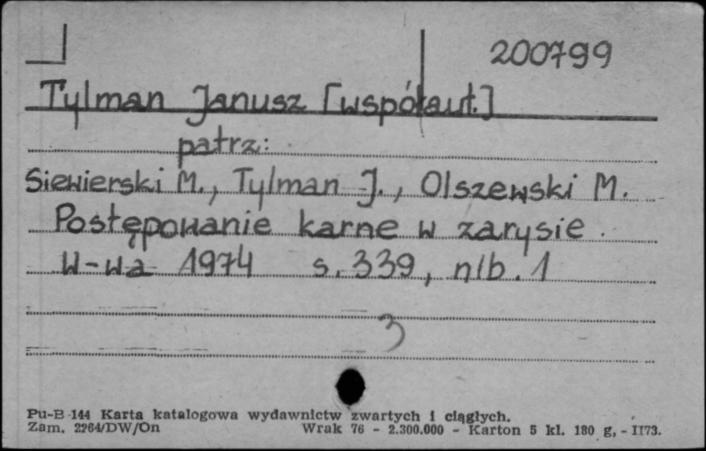 200799
Tylman Janusz [współaut.]
patrz:
Siewierski M., Tylman J., Olszewski M.
Postępowanie karne w zarysie.
W-wa 1974 s. 339, nlb. 1
3
Pu-B 144 Karta katalogowa wydawnictw zwartych i ciągłych.
Zam. 2264/DW/On Wrak 76 - 2.300.000 - Karton 5 kl. 180 g, - II73.